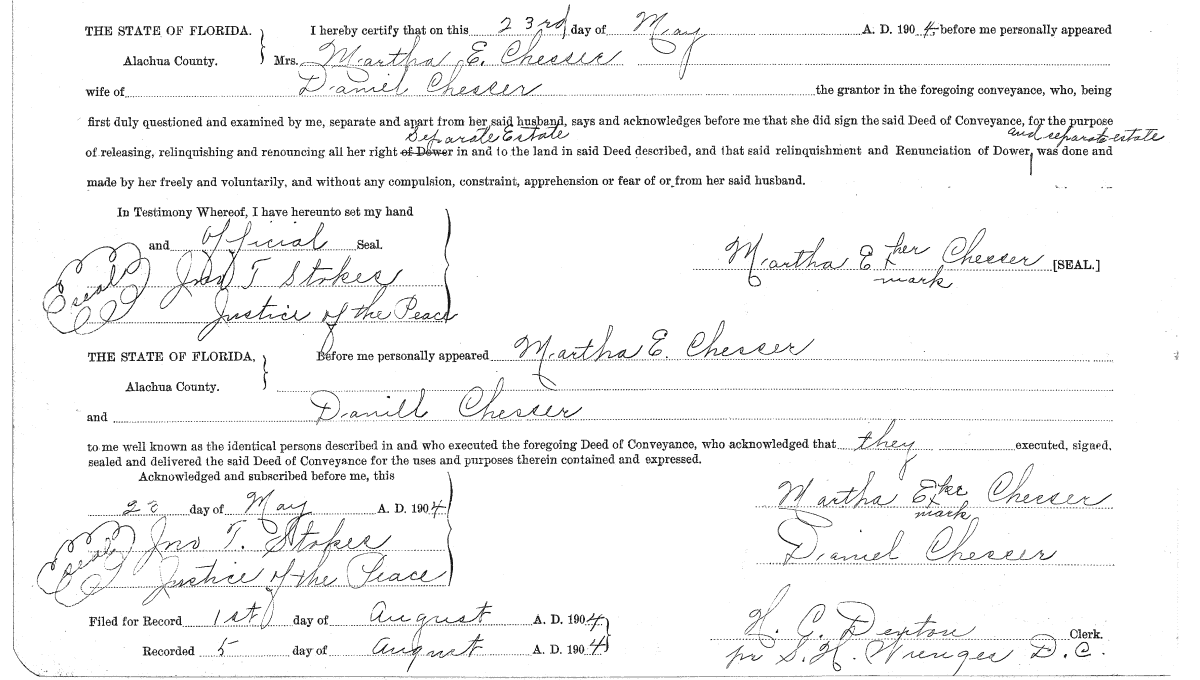 THE STATE OF FLORIDA. I hereby certify that on this 23rd day of May A. D. 1904 before me personally appeared
Alachua County. Mrs. Martha E. Chesser
wife of Daniel Chesser the grantor in the foregoing conveyance, who, being
first duly questioned and examined by me, separate and apart from her said husband, says and acknowledges before me that she did sign the said Deed of Conveyance, for the purpose
Separate Estate and separate estate
of releasing, relinquishing and renouncing all her right of Dower in and to the land in said Deed described, and that said relinquishment and Renunciation of Dower, was done and
made by her freely and voluntarily, and without any compulsion, constraint, apprehension or fear of or from her said husband.
In Testimony Whereof, I have hereunto set my hand
and official Seal.
Martha E her Chesser [SEAL.]
x mark
seal Jno T Stokes
Justice of the Peace
THE STATE OF FLORIDA, Before me personally appeared Martha E. Chesser
Alachua County.
and Daniell Chesser
to me well known as the identical persons described in and who executed the foregoing Deed of Conveyance, who acknowledged that they executed, signed,
sealed and delivered the said Deed of Conveyance for the uses and purposes therein contained and expressed.
Acknowledged and subscribed before me, this
23 day of May A. D. 1904
Martha E her Chesser
x mark
seal Jno T. Stokes
Daniel Chesser
Justice of the Peace
Filed for Record 1st day of August A. D. 1904
H. C. Denton Clerk.
Recorded 5 day of August A. D. 1904
pr S. H. D. C.